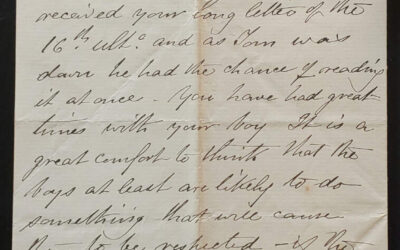 received your long letter of the
16th ulto and as Tom was
down he had the chance of reading
it at once - You have had great
times with your boy It is a
great comfort to think that the
boys at least are likely to do
something that will cause
to be respected - is the